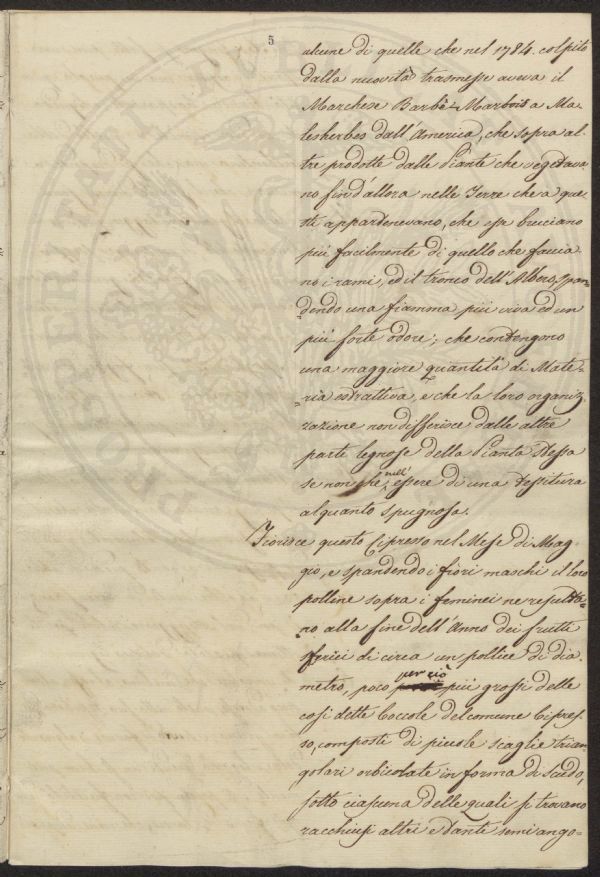 5
alcune di quelle che nel 1784. colpito
dalla nuovità trasmesse aveva il
Marchese Barbè-Marbois a Ma-
lesherbes dall'America, che sopra al-
tre prodotte dalle Piante che vegetava-
no fin d'allora nelle Terre che a que-
sti appartenevano, che esse bruciano
più facilmente di quello che faccia-
no i rami, ed il tronco dell'Albero, span-
dendo una fiamma più viva ed un
più forte odore; che contengono
una maggiore quantità di Mate-
ria estrattiva, e che la loro organiz-
zazione non differisce dalle altre
parti legnose della Pianta stessa
se non che nell'essere di una tessitura
alquanto spugnosa.
Fiorisce questo Cipresso nel Mese di Mag-
gio, e spandendo i fiori maschi il loro
polline sopra i feminei ne resulta-
no alla fine dell'Anno dei frutti
sferici di circa un pollice di dia-
metro, poco perciò più grossi delle
così dette Coccole del comune Cipres-
so, composti di piccole scaglie trian-
golari orbicolate in forma di Scudo,
sotto ciascuna delle quali si trovano
racchiusi altri e tanti semi ango-